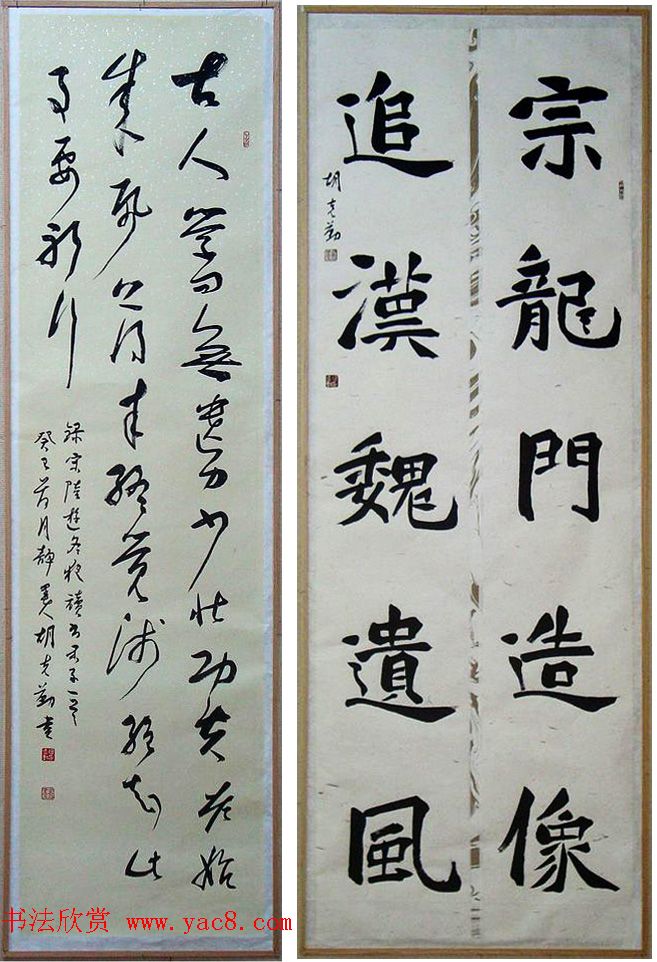 古人學问無遺力少壮功夫老始
成紙上得来終覺淺絕知此
事要躬行
錄宋陸游冬夜讀书示子
癸巳 月静 人胡克勤書
宗龍門造像
追漢魏遺風
胡克勤
书法欣赏 www.yac8.com